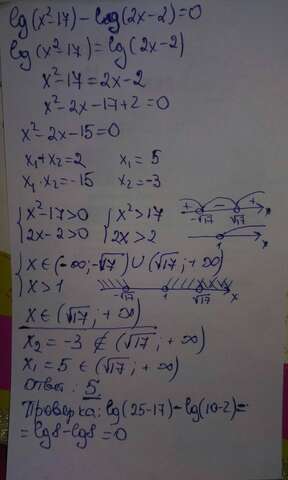 lg(x²-17) - lg(2x-2)=0
lg(x²-17)=lg(2x-2)
x²-17=2x-2
x²-2x-17+2=0
x²-2x-15=0
x₁+x₂=2 x₁=5
x₁·x₂=-15 x₂=-3
{x²-17>0 {x²>17 + - + -√17 √17 x
2x-2>0 2x>2 1 x
{x∈(-∞;-√17)∪(√17;+∞)
x>1 -√17 1 √17 x
x∈(√17;+∞)
x₂=-3∉(√17;+∞)
x₁=5∈(√17;+∞)
Ответ: 5
Проверка: lg(25-17)-lg(10-2)=
=lg8-lg8=0